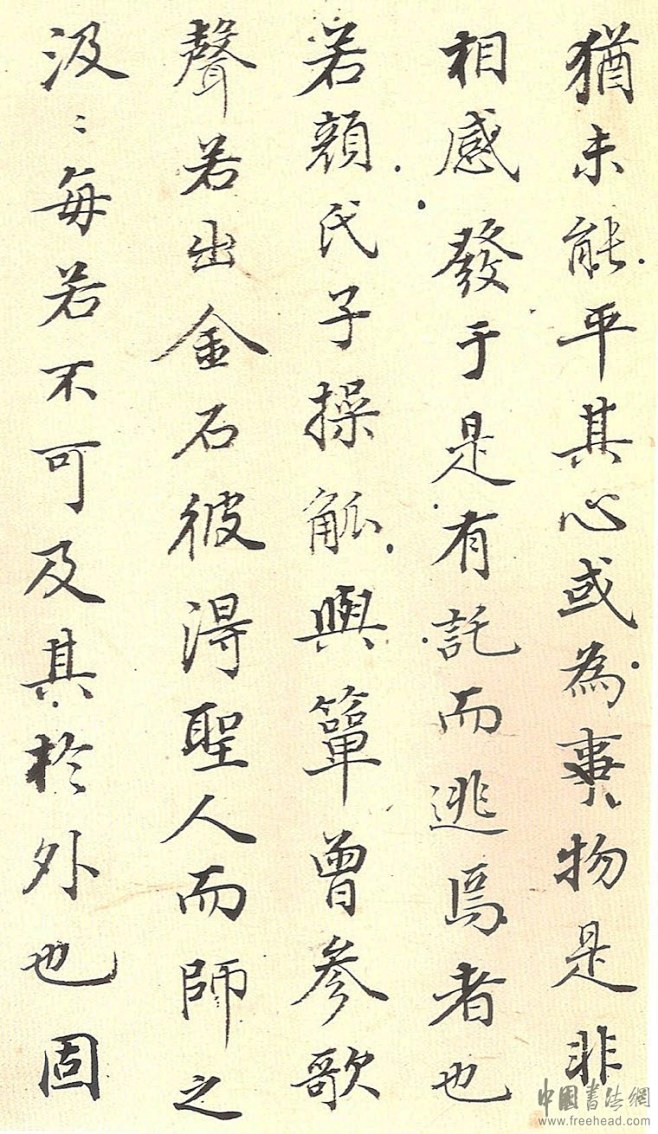 猶未能平其心或為事物是非
相感發于是有託而逃焉者也
若顏氏子操觚與簞曾參歌
聲若出金石彼得聖人而師之
汲〻每若不可及其於外也固
中国书法網
www.freehead.com